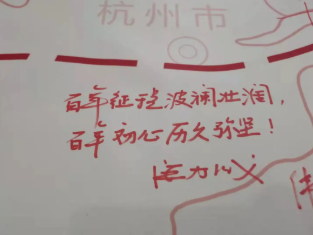 杭州市
百年征程波澜壮阔，
百年初心历久弥坚！